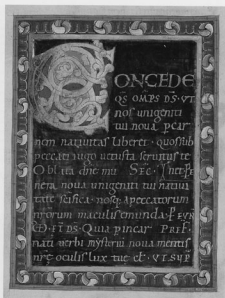 CONCEDE
QS OMPS DS · UT
nos unigeniti
tui noua p car
nem natiuitas liberet · quos sub
peccati iugo uetusta seruitus te
Oblata dne mu SEC ·
nera, noua unigeniti tui natiui
tate scifica · nosq; a peccatorum
nrorum maculis emunda · P EUN
DS · Quia p incar PREF
nati uerbi mysteriu noua mentis
nrę oculis lux tuę cl UT SUP